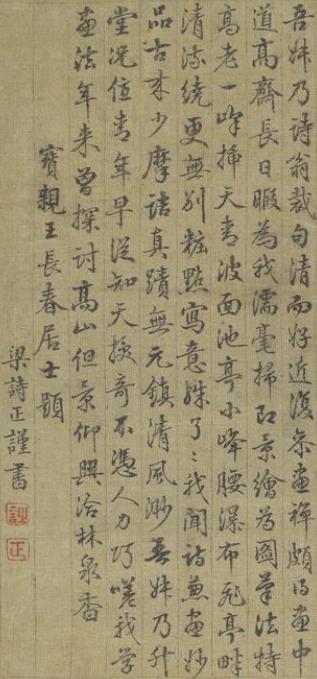 吾師乃詩翁裁句清而好近復參畫禪頗得畫中
道高齋長日暇為我濡毫掃即景繪為圖筆法特
高老一峰插天青波面池亭小峰腰瀑布飛亭畔
清流繞更無別粧點寫意殊了〻我聞詩兼畫妙
品古來少摩詰真蹟無元鎮清風渺吾師乃升
堂況值青年早從知天授奇不憑人力巧嗟我學
畫法年來曾探討高山但景仰興洽林泉杳
寶親王長春居士題
梁詩正謹書
詩
正